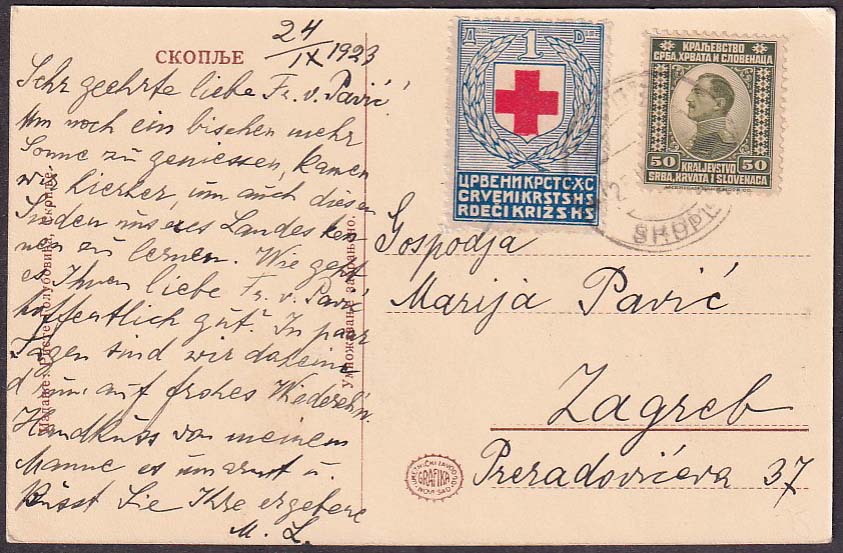 24/IX 1923
СКОПЉЕ
Sehr geehrte liebe Fr. v. Pavić!
Um noch ein bischen mehr
Sonne zu geniessen, kamen
wir hierher, um auch diesen
Süden unseres Landes ken-
nen zu lernen. Wie geht
es Ihnen liebe Fr. v. Pavić
hoffentlich gut? In paar
Tagen sind wir daheim
drum auf frohes Wiederseh'n.
Handkuss von meinem
Manne es umarmt u.
küsst Sie Ihre ergebene
M. L.
Скопље.
Умножавање забрањено.
Д 1 D
ЦРВЕНИ КРСТ С.Х.С
CRVENI KRST S H S
RDEČI KRIŽ S.H S
КРАЉЕВСТВО
СРБА, ХРВАТА И СЛОВЕНАЦА
50 KRALJEVSTVO 50
SRBA, KRVATA I SLOVENACA
SKOPL
Gospodja
Marija Pavić
Zagreb
Preradovićeva 37
UMETNIČKI ZAVOD
GRAFIKA
NOVI SAD